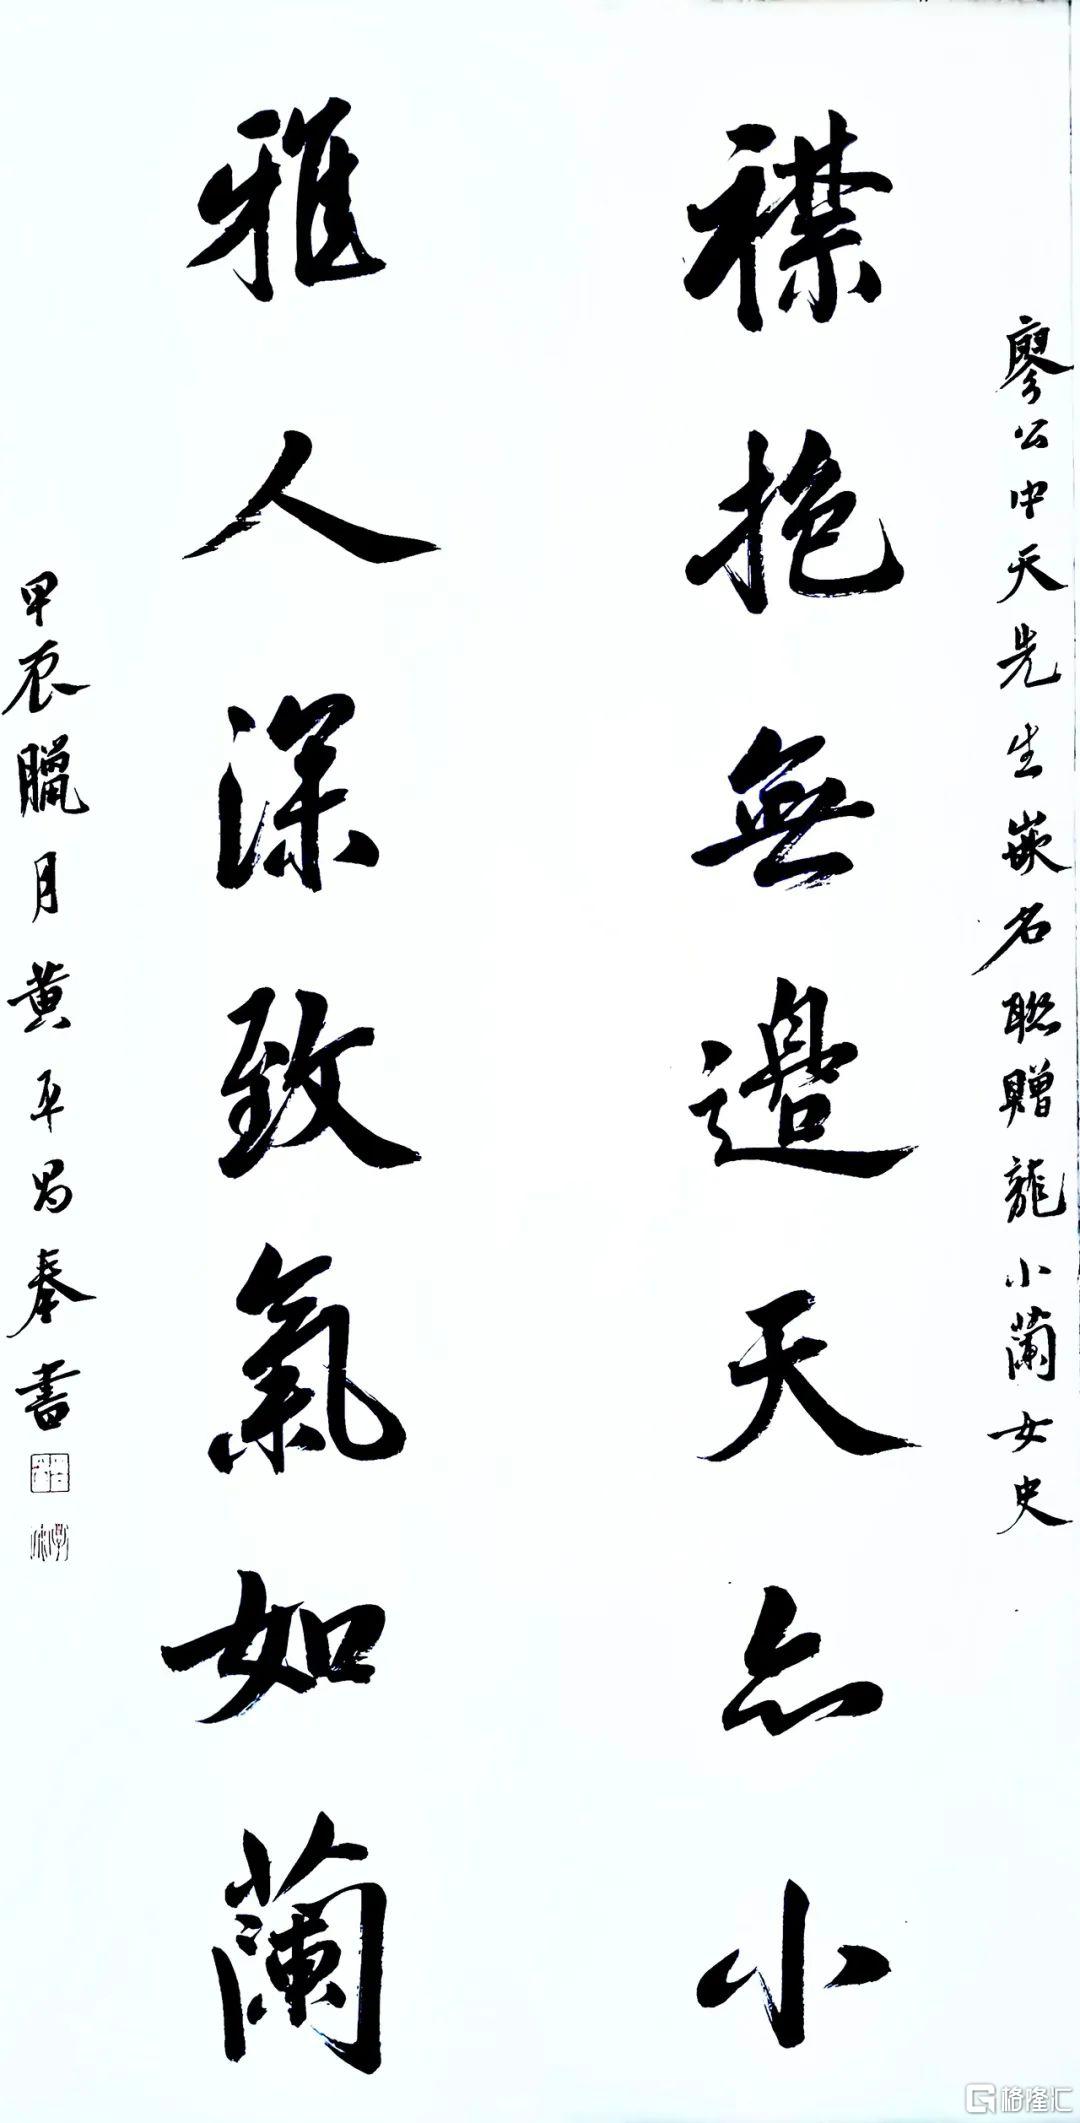 廖公中天先生嵌名聯贈龍小蘭女史
襟抱無邊天亦小
雅人深致氣如蘭
甲辰臘月黃平昌奉書
格隆汇